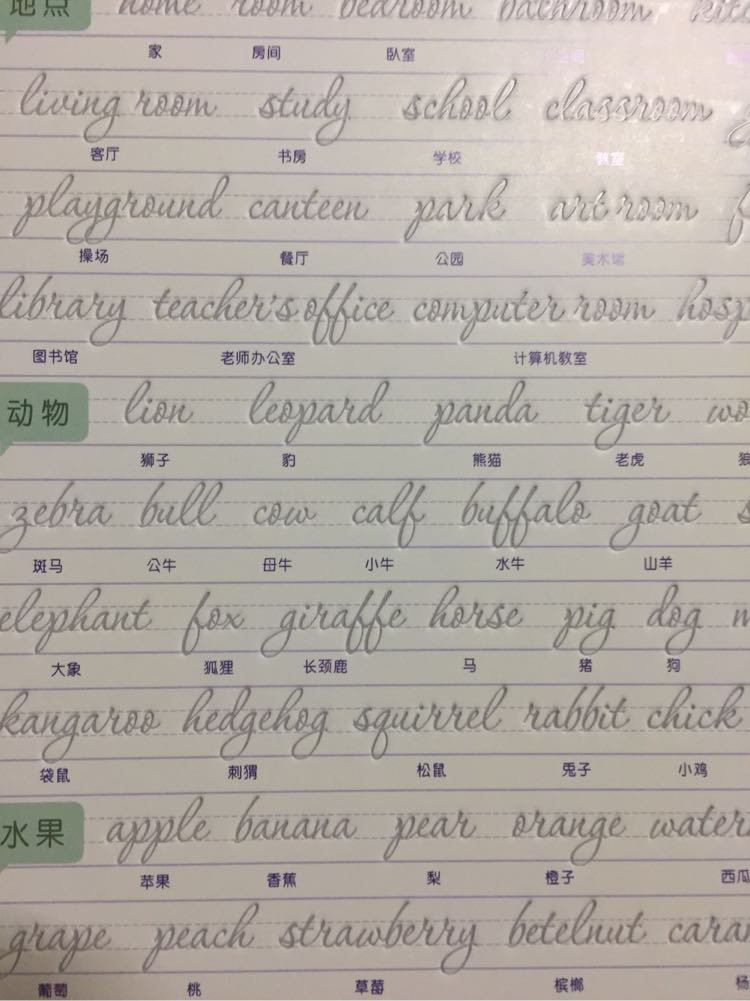 地点 home room bedroom bathroom
家 房间 卧室
living room study school classroom
客厅 书房 学校 教室
playground canteen park art room
操场 餐厅 公园 美术馆
library teacher's office computer room
图书馆 老师办公室 计算机教室
动物 lion leopard panda tiger
狮子 豹 熊猫 老虎 狼
zebra bull cow calf buffalo goat
斑马 公牛 母牛 小牛 水牛 山羊
elephant fox giraffe horse pig dog
大象 狐狸 长颈鹿 马 猪 狗
kangaroo hedgehog squirrel rabbit chick
袋鼠 刺猬 松鼠 兔子 小鸡
水果 apple banana pear orange water
苹果 香蕉 梨 橙子 西瓜
grape peach strawberry betelnut caram
葡萄 桃 草莓 槟榔 杨